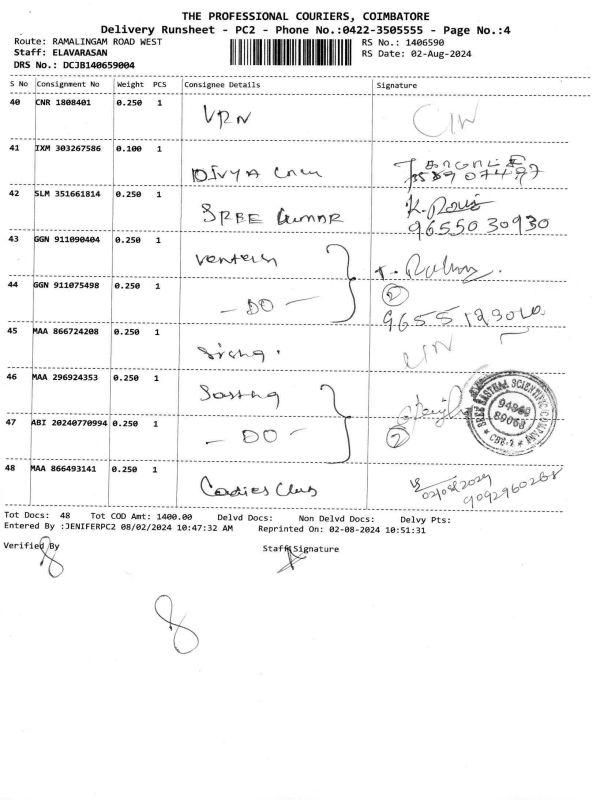 THE PROFESSIONAL COURIERS, COIMBATORE
Delivery Runsheet - PC2 - Phone No.:0422-3505555 - Page No.:4
Route: RAMALINGAM ROAD WEST RS No.: 1406590
Staff: ELAVARASAN RS Date: 02-Aug-2024
DRS No.: DCJB140659004
S No Consignment No Weight PCS Consignee Details Signature
40 CNR 1808401 0.250 1 VRN
41 IXM 303267586 0.100 1 DIVYA
42 SLM 351661814 0.250 1 SREE Kumar
9655030930
43 GGN 911090404 0.250 1
44 GGN 911075498 0.250 1 - DO - 2
45 MAA 866724208 0.250 1
46 MAA 296924353 0.250 1
47 ABI 20240770994 0.250 1 - DO - 2
SREE HASTHAA SCIENTIFIC COMPANY
94869
89068
* CBE-2 *
48 MAA 866493141 0.250 1 Ladies Club
02/08/2024
9092960268
Tot Docs: 48 Tot COD Amt: 1400.00 Delvd Docs: Non Delvd Docs: Delvy Pts:
Entered By :JENIFERPC2 08/02/2024 10:47:32 AM Reprinted On: 02-08-2024 10:51:31
Verified By Staff Signature